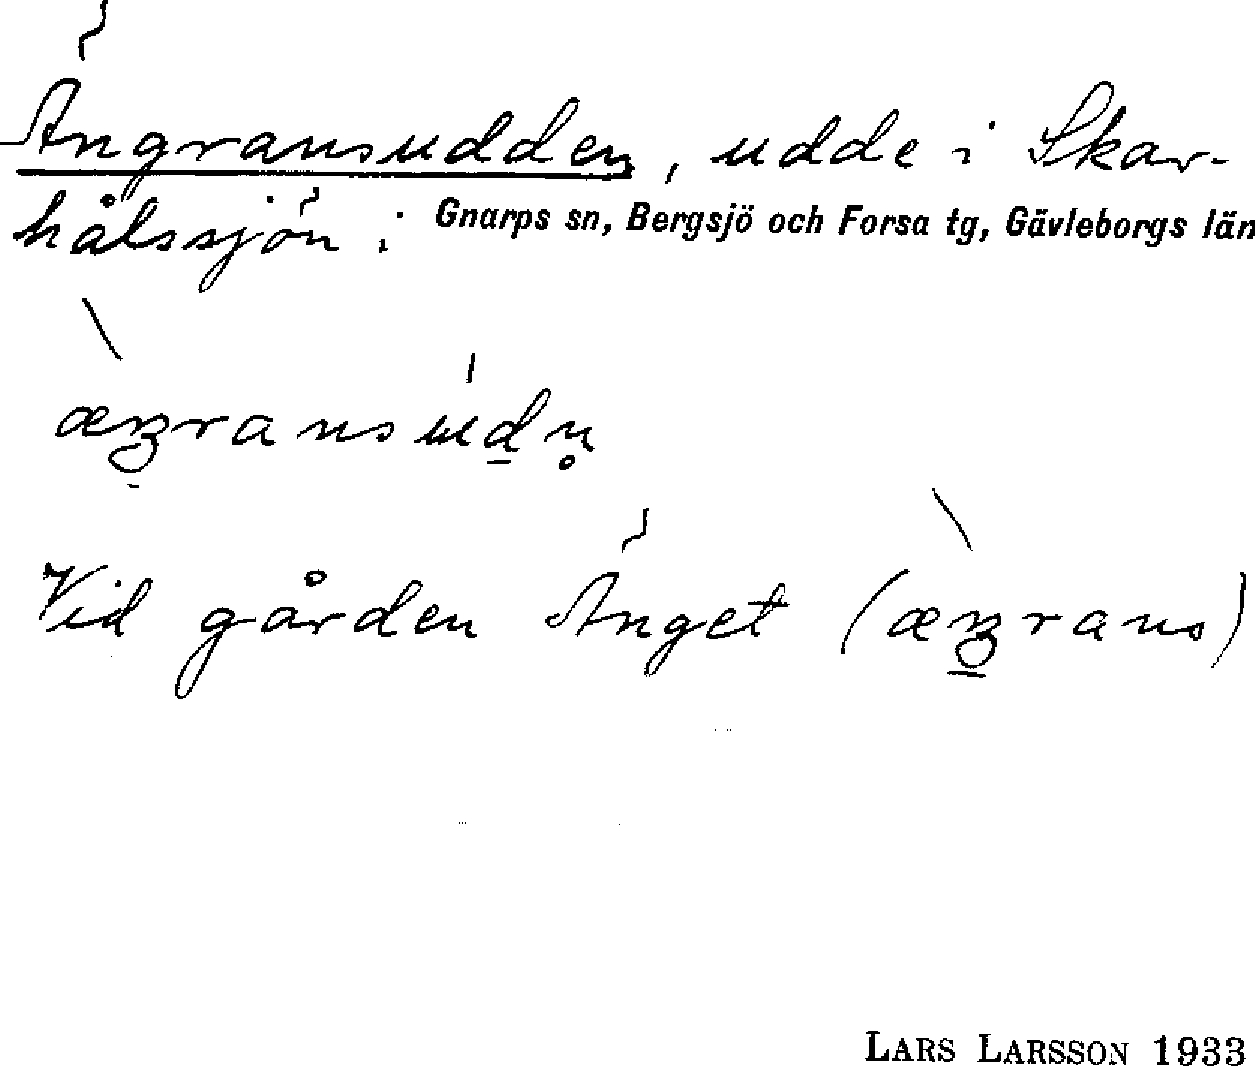 Ängransudden, udde i Skar-
hålssjön i Gnarps sn, Bergsjö och Forsa tg, Gävleborgs län
æŋransùdn̥
Vid gården Änget (æŋrans)
LARS LARSSON 1933